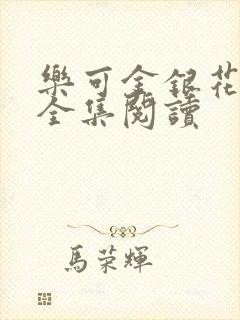 樂可金銀花
全集閱讀
馬榮輝